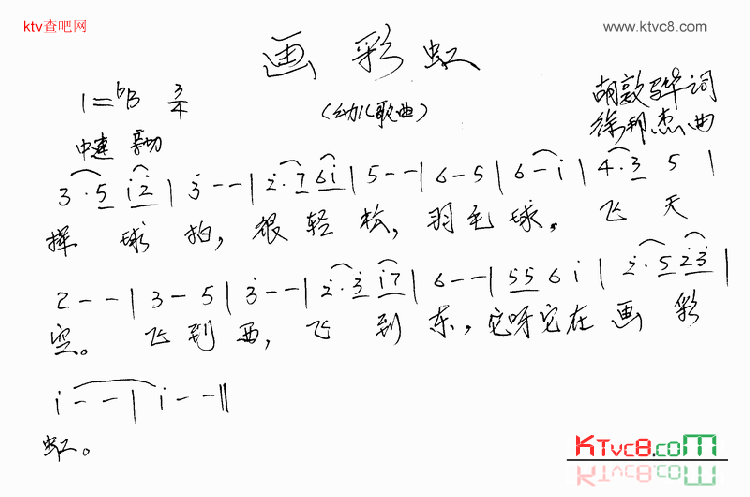 ktv查吧网
www.ktvc8.com
画彩虹
1=ᵇB 3/4
(幼儿歌曲)
胡敦骅词
徐邦杰曲
中速
3·5 i2 | 3 - - | 2·7 6i | 5 - - | 6 - 5 | 6 - i | 4·3 5 |
挥球拍,很轻松,羽毛球,飞天
2 - - | 3 - 5 | 3 - - | 2·3 i7 | 6 - - | 55 6 i | 2·5 23 |
空。飞到西,飞到东,它呀它在画彩
i - - | i - - ‖
虹。
KTvc8.com